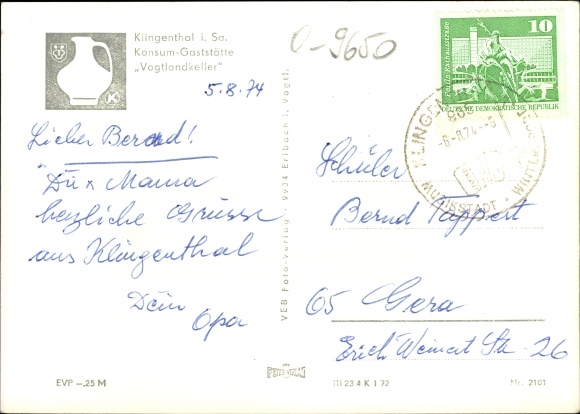 Klingenthal i. Sa.
Konsum-Gaststätte
„Vogtlandkeller"
K
0-9650
5.8.74
Lieber Bernd!
Dir x Mama
herzliche Grüsse
aus Klingenthal
Dein
Opa
EVP -,25 M
VEB Foto-Verlag · 9934 Erlbach i. Vogtl.
III 23 4 K 1 72
Nr. 2101
10
DEUTSCHE DEMOKRATISCHE REPUBLIK
KLINGEN
-6.8.74-
MUSIKSTADT · WINTER
Schüler
Bernd Tappert
65 Gera
Erich Weinert Str. 26